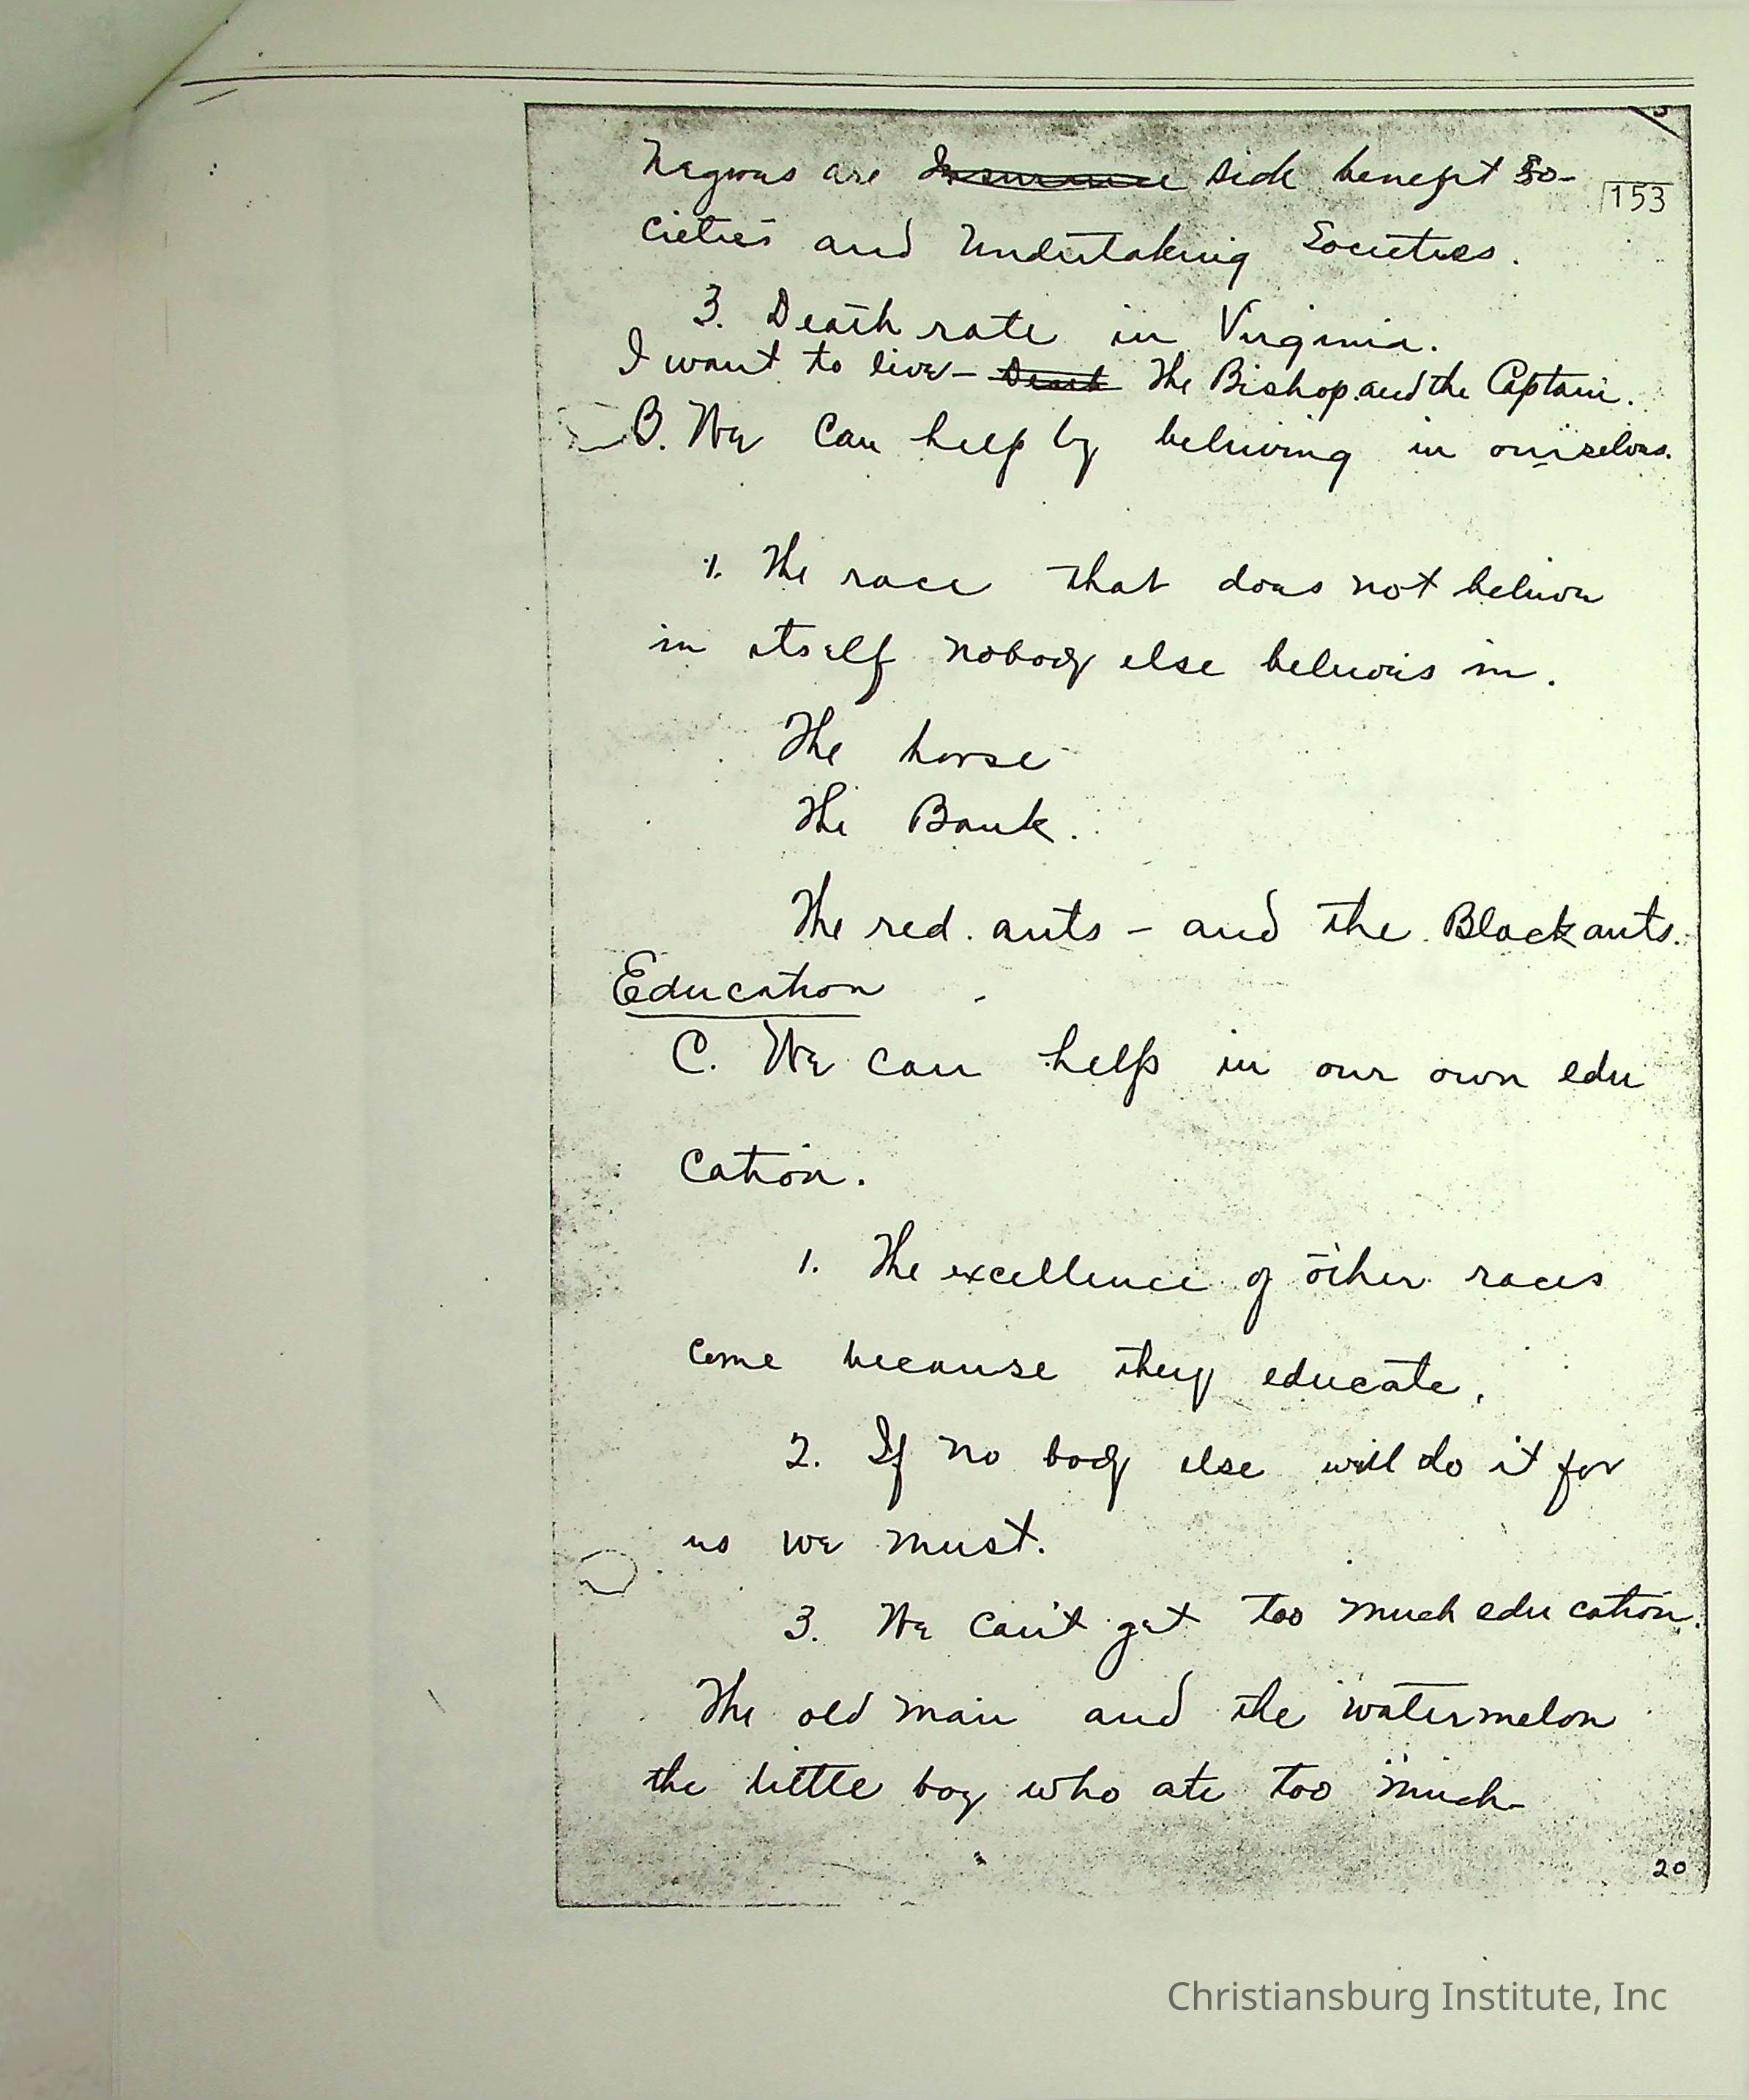 Negroes are ~~Insurance~~ sick benefit So-
153
cieties and Undertaking Societies.
3. Death rate in Virginia.
I want to live – ~~Death~~ The Bishop and the Captain.
B. We Can help by believing in ourselves.
1. The race that does not believe
in itself nobody else believes in.
The horse
The Bank.
The red ants – and the Black ants.
Education
C. We can help in our own edu
cation.
1. The excellence of other races
come because they educate.
2. If no body else will do it for
us we must.
3. We can't get too much education.
The old man and the watermelon
the little boy who ate too much–
20
Christiansburg Institute, Inc